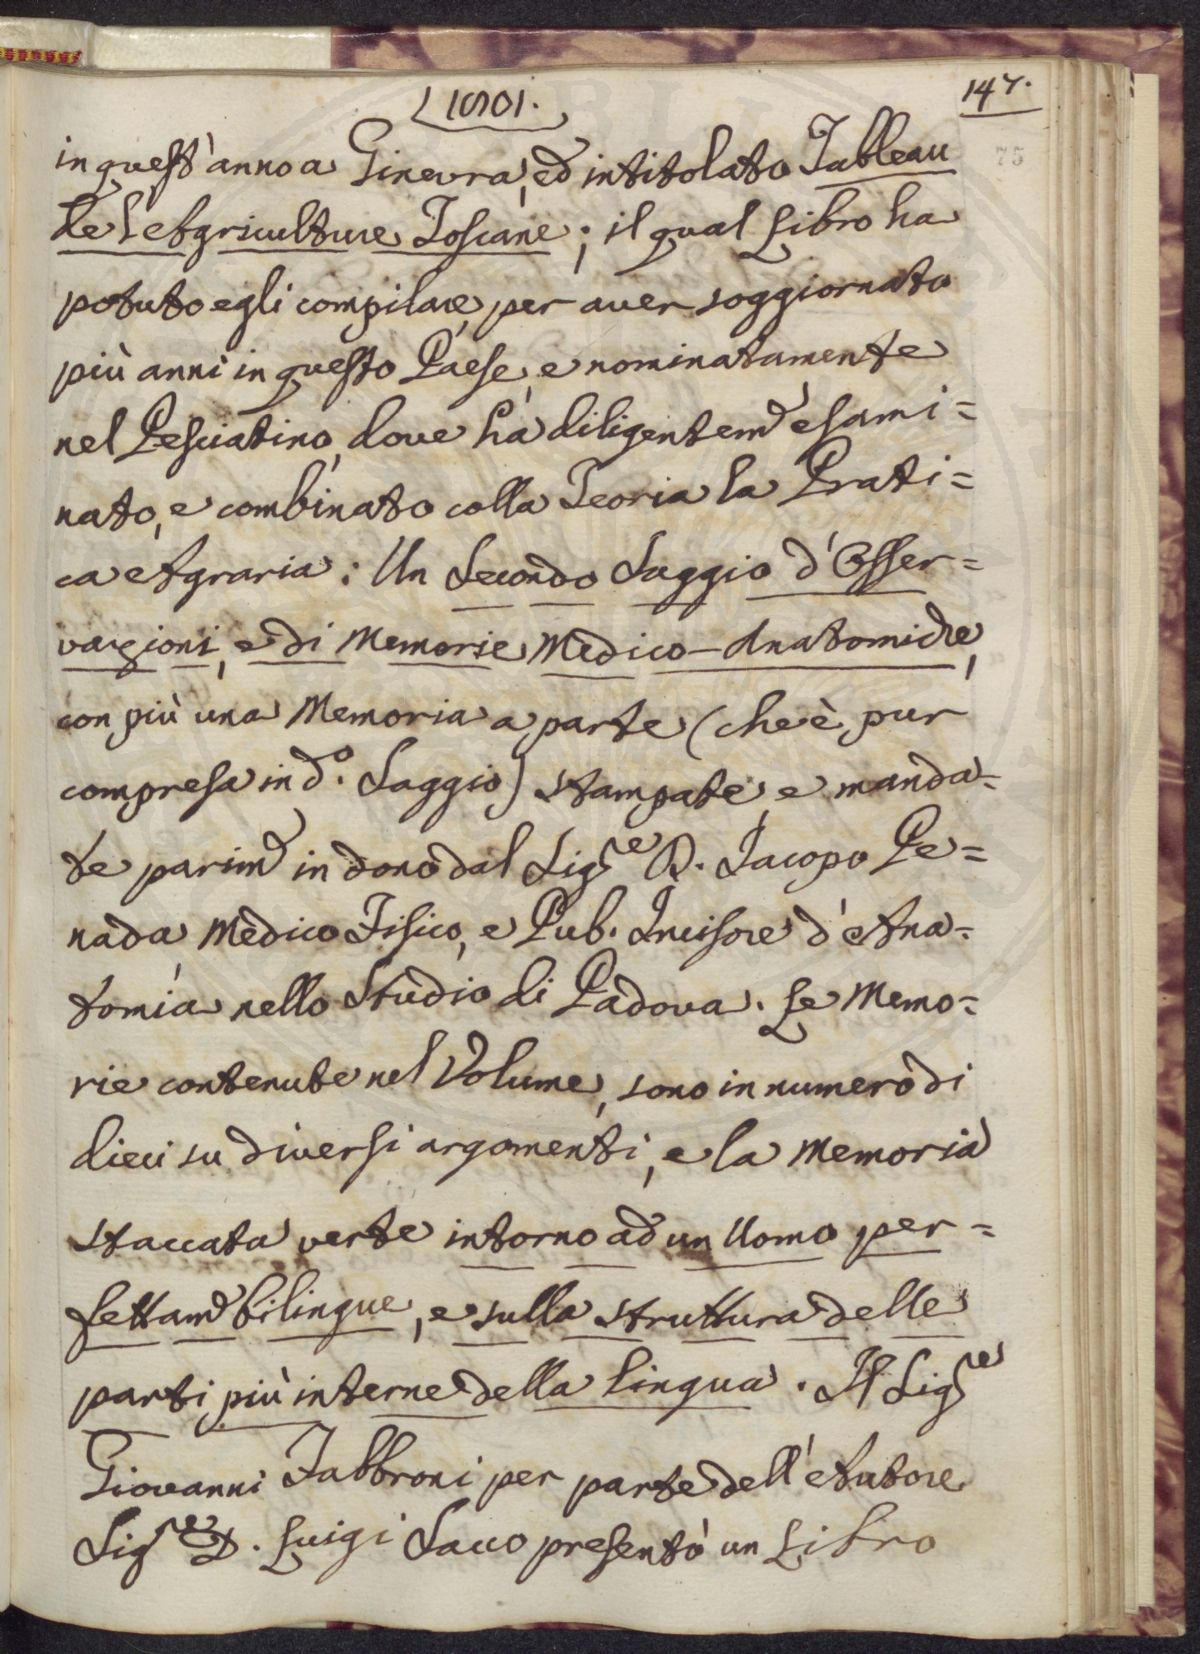 1801.
147.
75
in quest'anno a Ginevra, ed intitolato Tableau
de l'Agriculture Toscane; il qual Libro ha
potuto egli compilare, per aver soggiornato
più anni in questo Paese, e nominatamente
nel Pesciatino, dove ha diligentem.e esami=
nato, e combinato colla Teoria la Prati=
ca Agraria: Un Secondo Saggio d'Osser=
vazioni, e di Memorie Medico-Anatomiche,
con più una Memoria a parte (che è pur
compresa in d.o Saggio) stampate, e manda=
te parim.e in dono dal Sig.re D. Jacopo Pe=
nada, Medico Fisico, e Pub. Incisore d'Ana=
tomia nello Studio di Padova. Le Memo=
rie contenute nel Volume, sono in numero di
dieci su diversi argomenti, e la Memoria
staccata verte intorno ad un Uomo per=
fettam.e bilingue, e sulla struttura delle
parti più interne della lingua. Il Sig.re
Giovanni Fabbroni per parte dell'Autore
Sig.re D. Luigi Sacco presentò un Libro